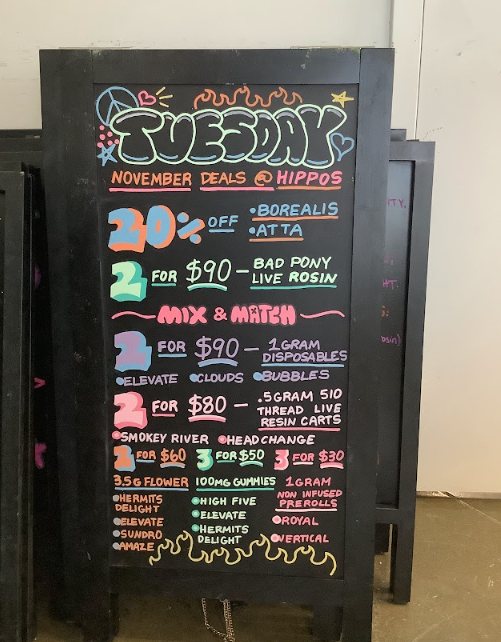 TUESDAY
NOVEMBER DEALS @ HIPPOS
20% OFF
•BOREALIS
•ATTA
2 FOR $90 – BAD PONY
LIVE ROSIN
MIX & MATCH
2 FOR $90 – 1 GRAM
DISPOSABLES
•ELEVATE •CLOUDS •BUBBLES
2 FOR $80 – .5 GRAM 510
THREAD LIVE
RESIN CARTS
•SMOKEY RIVER •HEADCHANGE
2 FOR $60
3.5G FLOWER
•HERMITS
DELIGHT
•ELEVATE
•SUNDRO
•AMAZE
3 FOR $50
100MG GUMMIES
•HIGH FIVE
•ELEVATE
•HERMITS
DELIGHT
3 FOR $30
1 GRAM
NON INFUSED
PREROLLS
•ROYAL
•VERTICAL